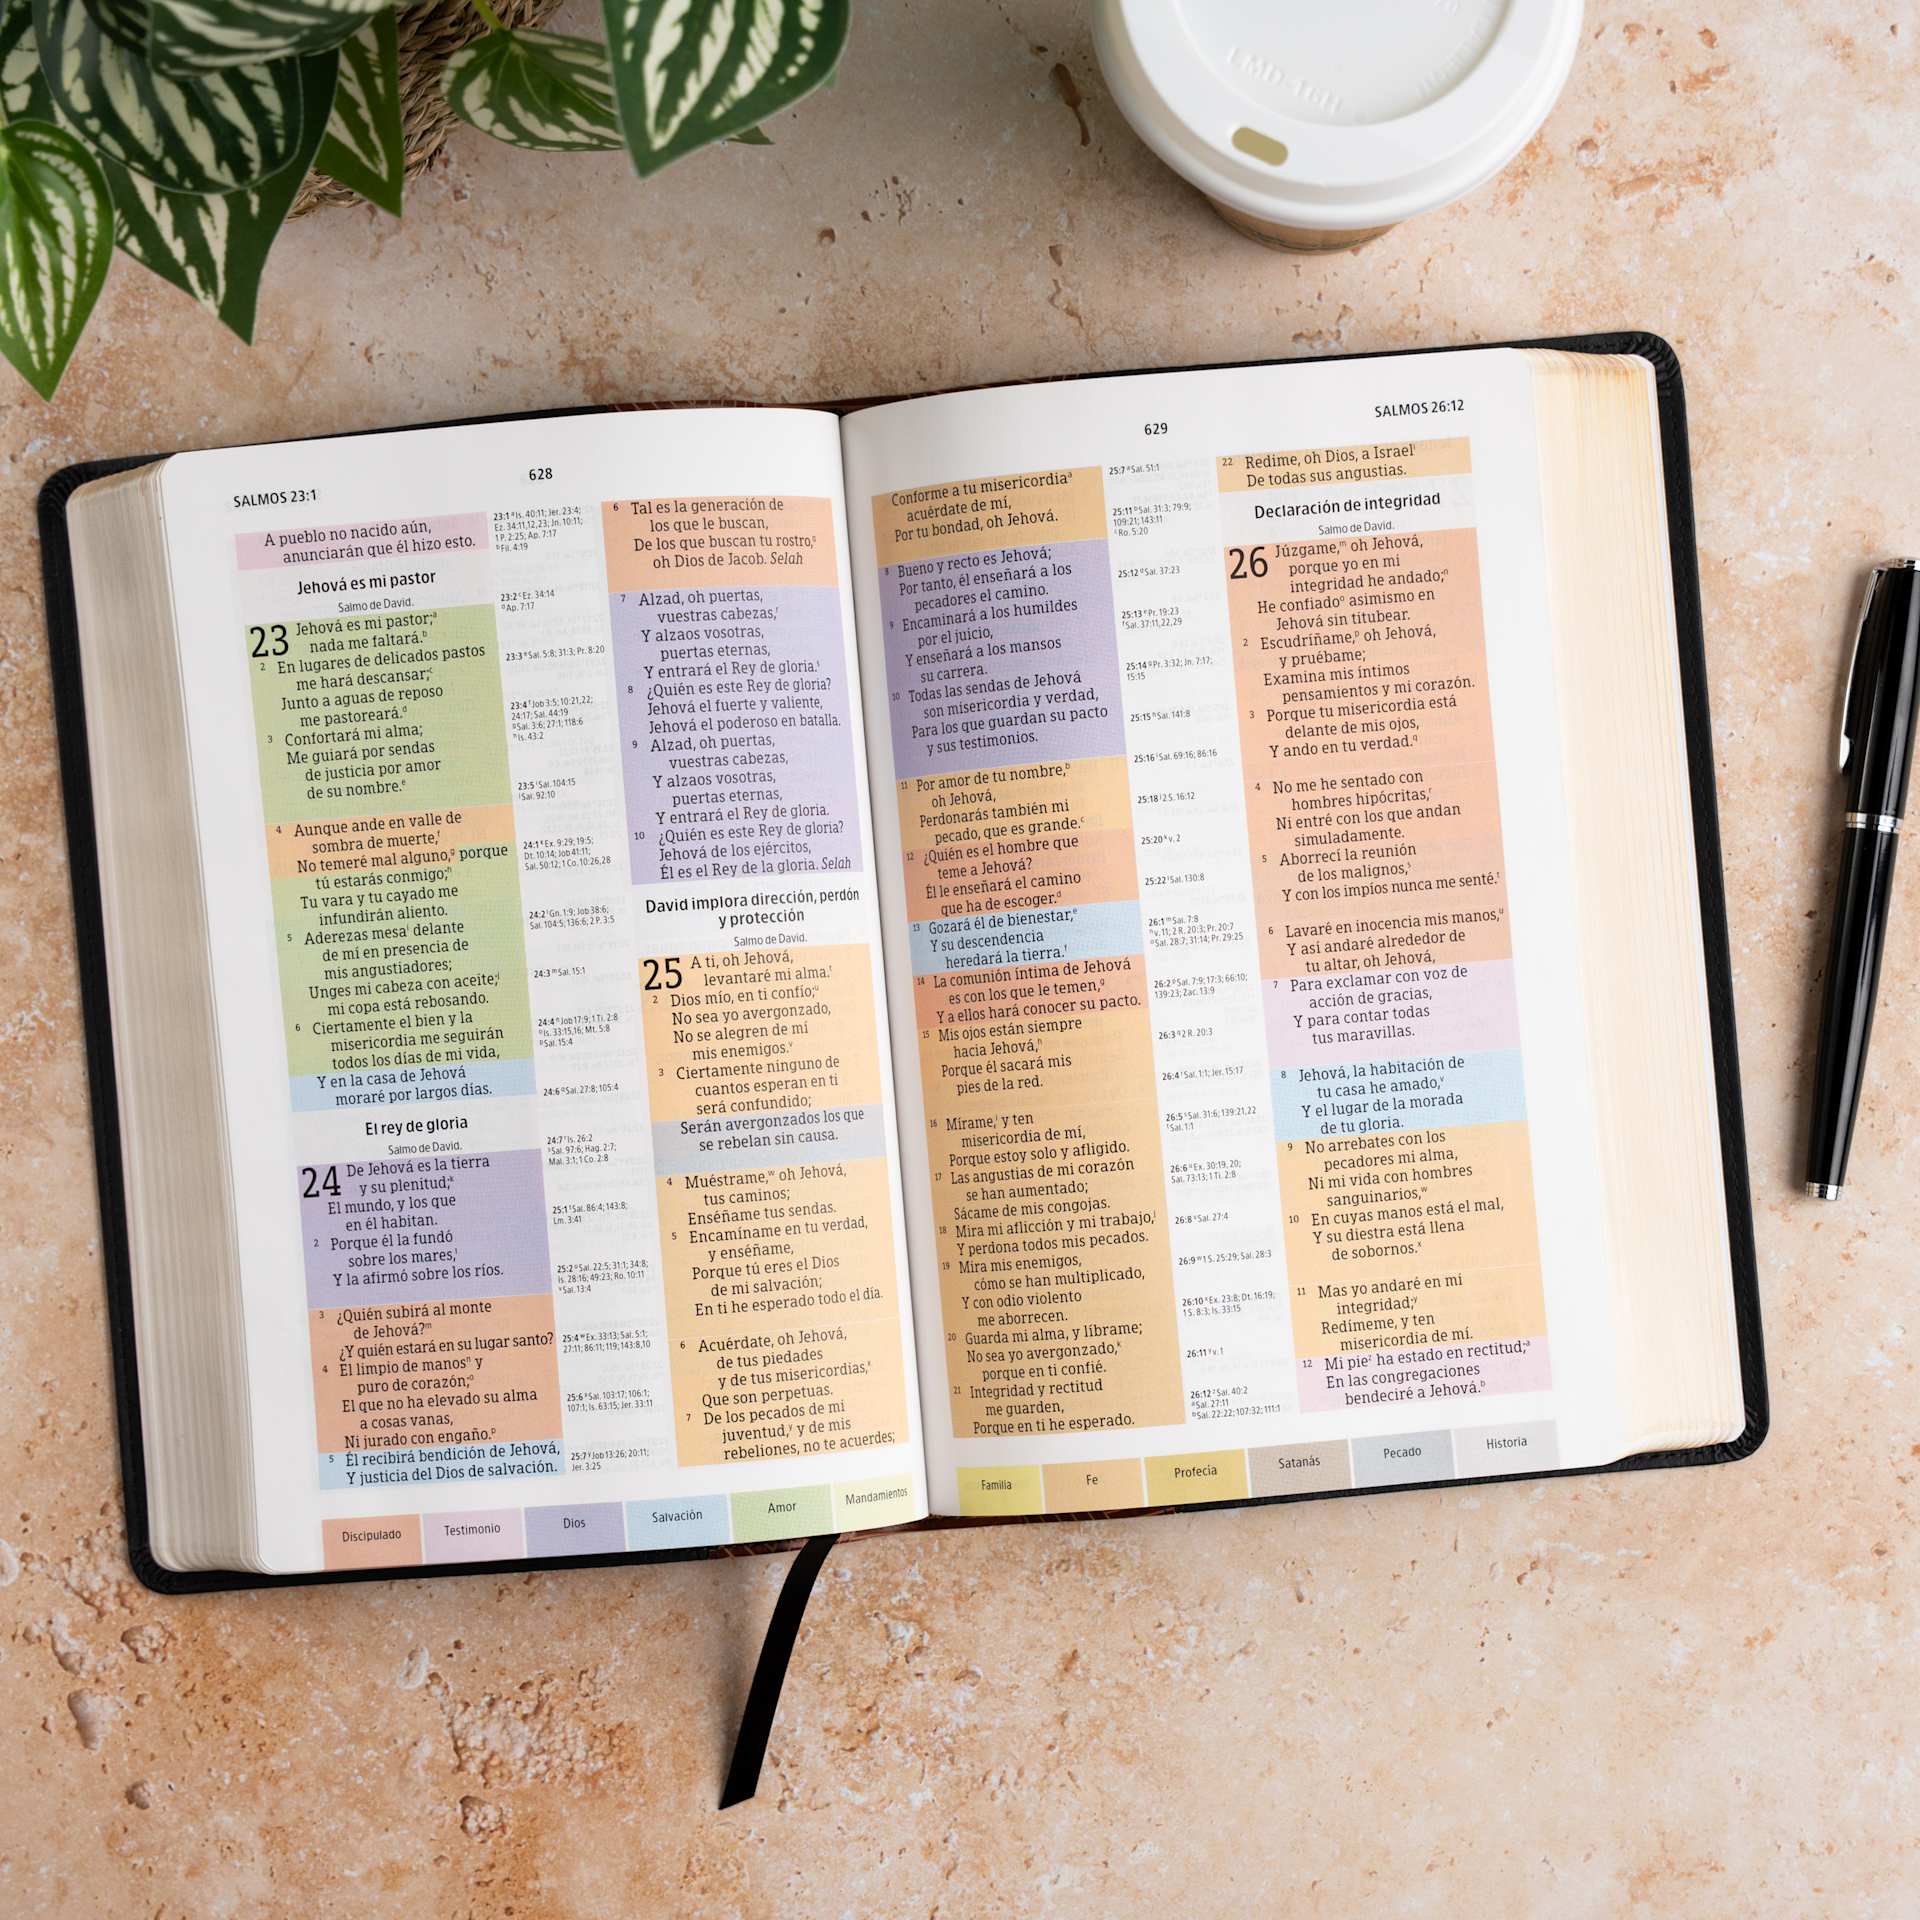 LMD-16H
SALMOS 23:1
628
A pueblo no nacido aún,
anunciarán que él hizo esto.
Jehová es mi pastor
Salmo de David.
23 Jehová es mi pastor;a
nada me faltará.b
2 En lugares de delicados pastos
me hará descansar;c
Junto a aguas de reposo
me pastoreará.d
3 Confortará mi alma;
Me guiará por sendas
de justicia por amor
de su nombre.e
4 Aunque ande en valle de
sombra de muerte,f
No temeré mal alguno,g porque
tú estarás conmigo;h
Tu vara y tu cayado me
infundirán aliento.
5 Aderezas mesai delante
de mí en presencia de
mis angustiadores;
Unges mi cabeza con aceite;j
mi copa está rebosando.
6 Ciertamente el bien y la
misericordia me seguirán
todos los días de mi vida,
Y en la casa de Jehová
moraré por largos días.
El rey de gloria
Salmo de David.
24 De Jehová es la tierra
y su plenitud;k
El mundo, y los que
en él habitan.
2 Porque él la fundó
sobre los mares,l
Y la afirmó sobre los ríos.
3 ¿Quién subirá al monte
de Jehová?m
¿Y quién estará en su lugar santo?
4 El limpio de manosn y
puro de corazón;o
El que no ha elevado su alma
a cosas vanas,
Ni jurado con engaño.p
5 Él recibirá bendición de Jehová,
Y justicia del Dios de salvación.
23:1 a Is. 40:11; Jer. 23:4;
Ez. 34:11,12,23; Jn. 10:11;
1 P. 2:25; Ap. 7:17
b Fil. 4:19
23:2 c Ez. 34:14
d Ap. 7:17
23:3 e Sal. 5:8; 31:3; Pr. 8:20
23:4 f Job 3:5; 10:21,22;
24:17; Sal. 44:19
g Sal. 3:6; 27:1; 118:6
h Is. 43:2
23:5 i Sal. 104:15
j Sal. 92:10
24:1 k Ex. 9:29; 19:5;
Dt. 10:14; Job 41:11;
Sal. 50:12; 1 Co. 10:26,28
24:2 l Gn. 1:9; Job 38:6;
Sal. 104:5; 136:6; 2 P. 3:5
24:3 m Sal. 15:1
24:4 n Job 17:9; 1 Ti. 2:8
o Is. 33:15,16; Mt. 5:8
p Sal. 15:4
24:6 q Sal. 27:8; 105:4
24:7 r Is. 26:2
s Sal. 97:6; Hag. 2:7;
Mal. 3:1; 1 Co. 2:8
25:1 t Sal. 86:4; 143:8;
Lm. 3:41
25:2 u Sal. 22:5; 31:1; 34:8;
Is. 28:16; 49:23; Ro. 10:11
v Sal. 13:4
25:4 w Ex. 33:13; Sal. 5:1;
27:11; 86:11; 119; 143:8,10
25:6 x Sal. 103:17; 106:1;
107:1; Is. 63:15; Jer. 33:11
25:7 y Job 13:26; 20:11;
Jer. 3:25
6 Tal es la generación de
los que le buscan,
De los que buscan tu rostro,q
oh Dios de Jacob. Selah
7 Alzad, oh puertas,
vuestras cabezas,r
Y alzaos vosotras,
puertas eternas,
Y entrará el Rey de gloria.s
8 ¿Quién es este Rey de gloria?
Jehová el fuerte y valiente,
Jehová el poderoso en batalla.
9 Alzad, oh puertas,
vuestras cabezas,
Y alzaos vosotras,
puertas eternas,
Y entrará el Rey de gloria.
10 ¿Quién es este Rey de gloria?
Jehová de los ejércitos,
Él es el Rey de la gloria. Selah
David implora dirección, perdón
y protección
Salmo de David.
25 A ti, oh Jehová,
levantaré mi alma.t
2 Dios mío, en ti confío;u
No sea yo avergonzado,
No se alegren de mí
mis enemigos.v
3 Ciertamente ninguno de
cuantos esperan en ti
será confundido;
Serán avergonzados los que
se rebelan sin causa.
4 Muéstrame,w oh Jehová,
tus caminos;
Enséñame tus sendas.
5 Encamíname en tu verdad,
y enséñame,
Porque tú eres el Dios
de mi salvación;
En ti he esperado todo el día.
6 Acuérdate, oh Jehová,
de tus piedades
y de tus misericordias,x
Que son perpetuas.
7 De los pecados de mi
juventud,y y de mis
rebeliones, no te acuerdes;
Discipulado
Testimonio
Dios
Salvación
Amor
Mandamientos
629
SALMOS 26:12
Conforme a tu misericordiaa
acuérdate de mí,
Por tu bondad, oh Jehová.
8 Bueno y recto es Jehová;
Por tanto, él enseñará a los
pecadores el camino.
9 Encaminará a los humildes
por el juicio,
Y enseñará a los mansos
su carrera.
10 Todas las sendas de Jehová
son misericordia y verdad,
Para los que guardan su pacto
y sus testimonios.
11 Por amor de tu nombre,b
oh Jehová,
Perdonarás también mi
pecado, que es grande.c
12 ¿Quién es el hombre que
teme a Jehová?
Él le enseñará el camino
que ha de escoger.d
13 Gozará él de bienestar,e
Y su descendencia
heredará la tierra.f
14 La comunión íntima de Jehová
es con los que le temen,g
Y a ellos hará conocer su pacto.
15 Mis ojos están siempre
hacia Jehová,h
Porque él sacará mis
pies de la red.
16 Mírame,i y ten
misericordia de mí,
Porque estoy solo y afligido.
17 Las angustias de mi corazón
se han aumentado;
Sácame de mis congojas.
18 Mira mi aflicción y mi trabajo,j
Y perdona todos mis pecados.
19 Mira mis enemigos,
cómo se han multiplicado,
Y con odio violento
me aborrecen.
20 Guarda mi alma, y líbrame;
No sea yo avergonzado,k
porque en ti confié.
21 Integridad y rectitud
me guarden,
Porque en ti he esperado.
25:7 a Sal. 51:1
25:11 b Sal. 31:3; 79:9;
109:21; 143:11
c Ro. 5:20
25:12 d Sal. 37:23
25:13 e Pr. 19:23
f Sal. 37:11,22,29
25:14 g Pr. 3:32; Jn. 7:17;
15:15
25:15 h Sal. 141:8
25:16 i Sal. 69:16; 86:16
25:18 j 2 S. 16:12
25:20 k v. 2
25:22 l Sal. 130:8
26:1 m Sal. 7:8
n v. 11; 2 R. 20:3; Pr. 20:7
o Sal. 28:7; 31:14; Pr. 29:25
26:2 p Sal. 7:9; 17:3; 66:10;
139:23; Zac. 13:9
26:3 q 2 R. 20:3
26:4 r Sal. 1:1; Jer. 15:17
26:5 s Sal. 31:6; 139:21,22
t Sal. 1:1
26:6 u Ex. 30:19, 20;
Sal. 73:13; 1 Ti. 2:8
26:8 v Sal. 27:4
26:9 w 1 S. 25:29; Sal. 28:3
26:10 x Ex. 23:8; Dt. 16:19;
1 S. 8:3; Is. 33:15
26:11 y v. 1
26:12 z Sal. 40:2
a Sal. 27:11
b Sal. 22:22; 107:32; 111:1
22 Redime, oh Dios, a Israell
De todas sus angustias.
Declaración de integridad
Salmo de David.
26 Júzgame,m oh Jehová,
porque yo en mi
integridad he andado;n
He confiadoo asimismo en
Jehová sin titubear.
2 Escudríñame,p oh Jehová,
y pruébame;
Examina mis íntimos
pensamientos y mi corazón.
3 Porque tu misericordia está
delante de mis ojos,
Y ando en tu verdad.q
4 No me he sentado con
hombres hipócritas,r
Ni entré con los que andan
simuladamente.
5 Aborrecí la reunión
de los malignos,s
Y con los impíos nunca me senté.t
6 Lavaré en inocencia mis manos,u
Y así andaré alrededor de
tu altar, oh Jehová,
7 Para exclamar con voz de
acción de gracias,
Y para contar todas
tus maravillas.
8 Jehová, la habitación de
tu casa he amado,v
Y el lugar de la morada
de tu gloria.
9 No arrebates con los
pecadores mi alma,
Ni mi vida con hombres
sanguinarios,w
10 En cuyas manos está el mal,
Y su diestra está llena
de sobornos.x
11 Mas yo andaré en mi
integridad;y
Redímeme, y ten
misericordia de mí.
12 Mi piez ha estado en rectitud;a
En las congregaciones
bendeciré a Jehová.b
Familia
Fe
Profecía
Satanás
Pecado
Historia